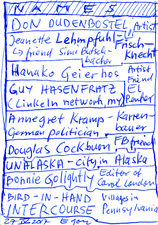 NAMES
DON DUDENBOSTEL Artist
Jeanette Lehmpfuhl =
↳ friend Simi Butsch- Frisch-
bacher Knecht
Hanako Geierhos Artist
GUY HASENFRATZ
(LinkedIn network, my)
Annegret Kramp- Karren-
German politician bauer
Douglas Cockburn FB friend
UNALASKA - City in Alaska
Bonnie Golightly Editor of
BIRD-IN-HAND Villages in
INTERCOURSE Pennsylvania